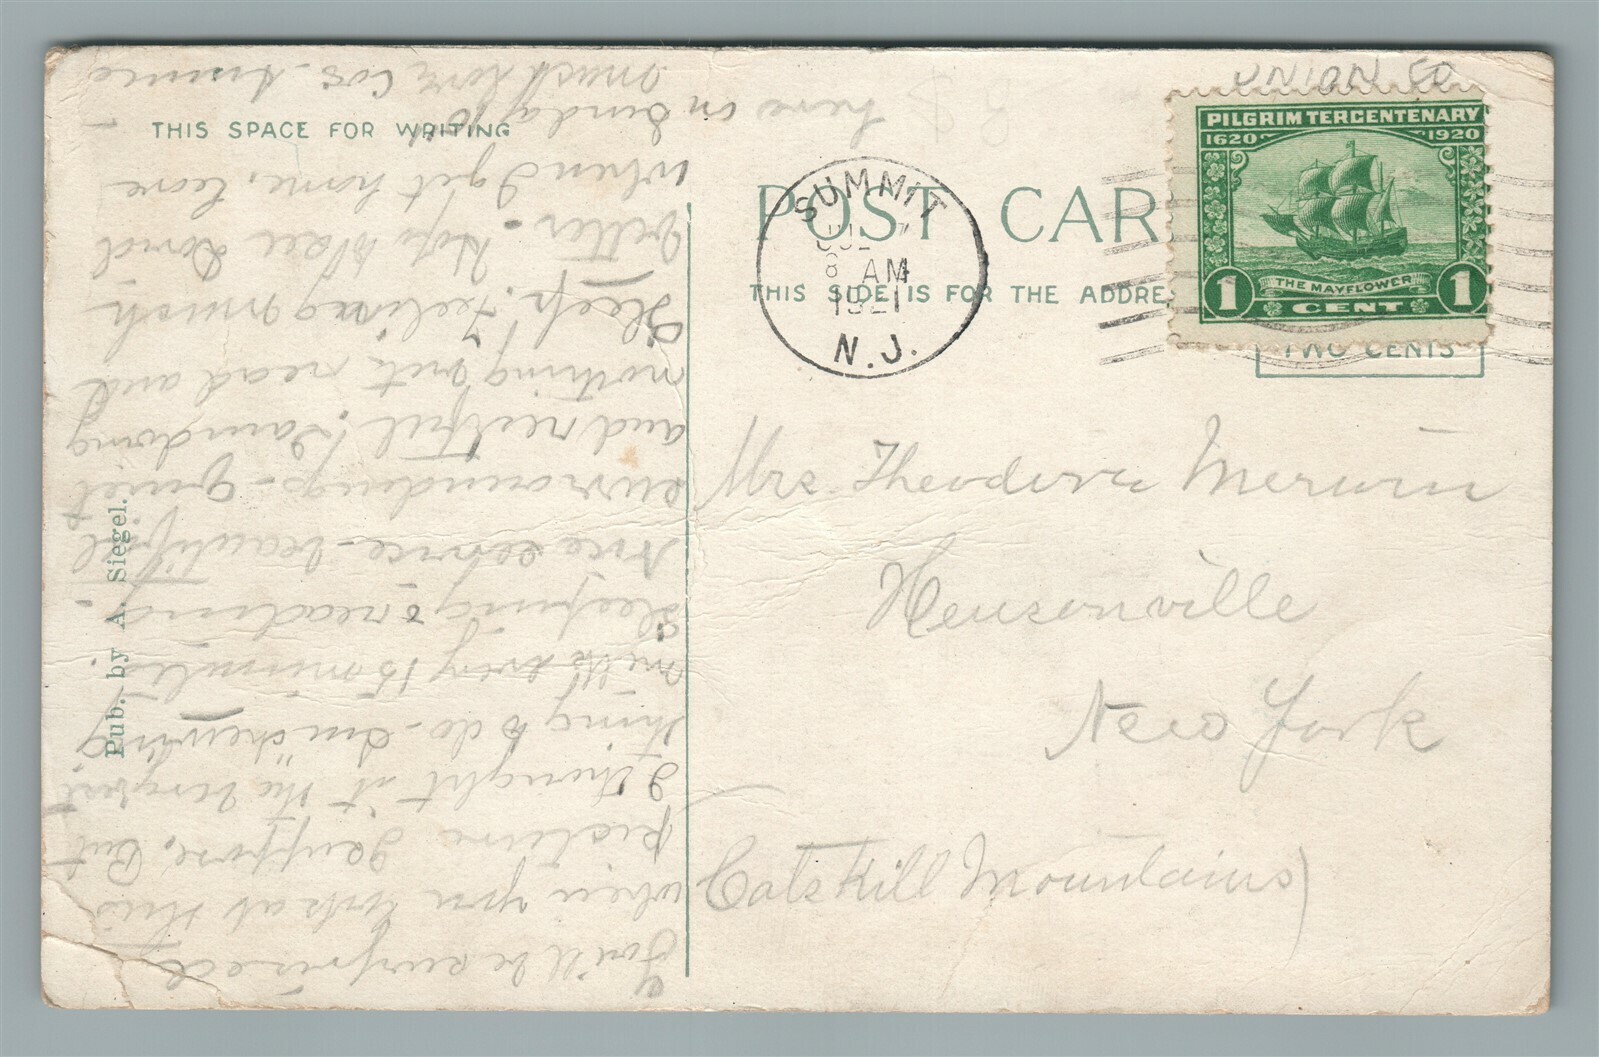 THIS SPACE FOR WRITING
POST CAR
THIS SIDE IS FOR THE ADDRE
TWO CENTS
Pub. by A. Siegel.
UNION CO
PILGRIM TERCENTENARY
1620 1920
THE MAYFLOWER
1 CENT 1
SUMMIT
JUL 7
8 AM
1921
N.J.
Mrs. Theodore Merwin
Hensonville
New York
(Catskill Mountains)
You'll be surprised
when you look at this
picture I suppose. But
I thought it the wisest
thing to do - Am drinking
milk every 15 minutes.
Sleeping & reading -
Nice service - beautiful
surroundings - quiet
and restful! I am doing
nothing but read and
sleep! Feeling much
better - Hope to see David
when I get home. Leave
here on Sunday 10 -
Much love,